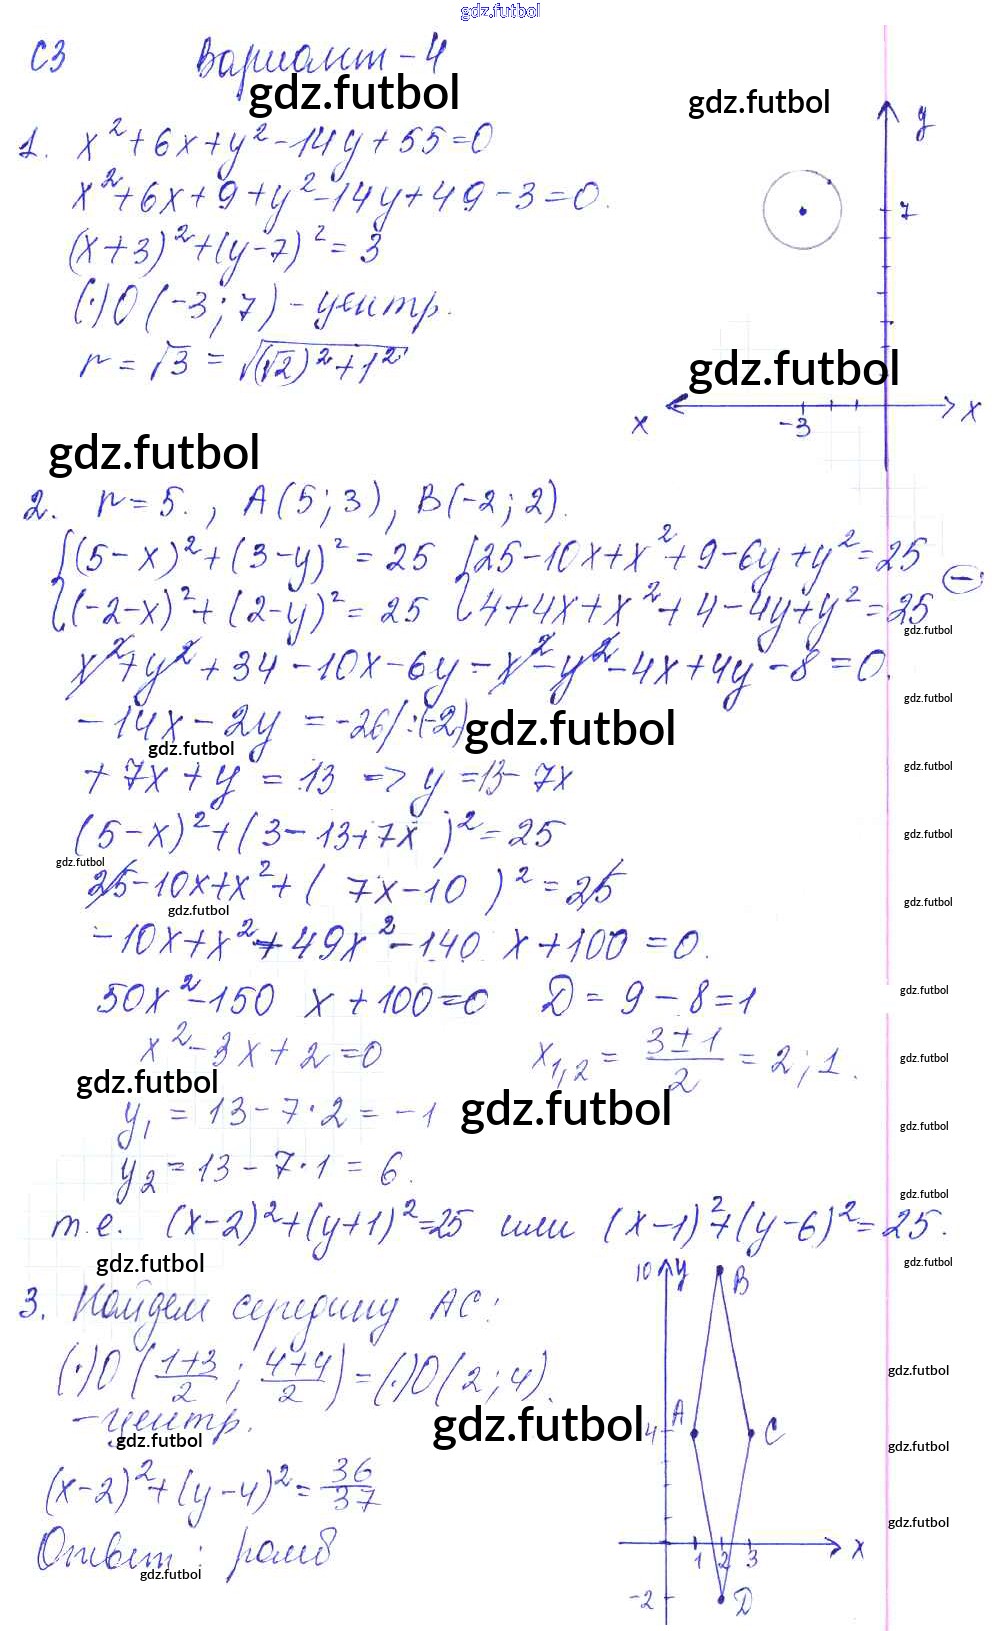 gdz.futbol
С3 Вариант - 4
gdz.futbol
gdz.futbol
1. x² + 6x + y² - 14y + 55 = 0
x² + 6x + 9 + y² - 14y + 49 - 3 = 0.
(x + 3)² + (y - 7)² = 3
(·) O (-3; 7) - центр.
r = √3 = √((√2)² + 1²)
y
7
-3
x
x
gdz.futbol
gdz.futbol
2. r = 5., A (5; 3), B (-2; 2).
{(5 - x)² + (3 - y)² = 25 {25 - 10x + x² + 9 - 6y + y² = 25
{(-2 - x)² + (2 - y)² = 25 {4 + 4x + x² + 4 - 4y + y² = 25 (-)
gdz.futbol
x² + y² + 34 - 10x - 6y - x² - y² - 4x + 4y - 8 = 0.
gdz.futbol
- 14x - 2y = -26 /:(-2)
gdz.futbol
gdz.futbol
gdz.futbol
+ 7x + y = 13 => y = 13 - 7x
(5 - x)² + (3 - 13 + 7x)² = 25
gdz.futbol
gdz.futbol
25 - 10x + x² + (7x - 10)² = 25
gdz.futbol
gdz.futbol
- 10x + x² + 49x² - 140 x + 100 = 0.
50x² - 150 x + 100 = 0 D = 9 - 8 = 1
gdz.futbol
x² - 3x + 2 = 0 x₁,₂ = (3 ± 1)/2 = 2; 1.
gdz.futbol
gdz.futbol
gdz.futbol
y₁ = 13 - 7 · 2 = -1
gdz.futbol
y₂ = 13 - 7 · 1 = 6.
gdz.futbol
т.е. (x - 2)² + (y + 1)² = 25 или (x - 1)² + (y - 6)² = 25.
gdz.futbol
gdz.futbol
3. Найдем середину AC:
(·) O ((1+3)/2; (4+4)/2) = (·) O (2; 4).
- центр.
gdz.futbol
gdz.futbol
(x - 2)² + (y - 4)² = 36/37
Ответ: ромб
gdz.futbol
10 y
B
gdz.futbol
A
4
C
gdz.futbol
gdz.futbol
1 2 3
x
-2
D